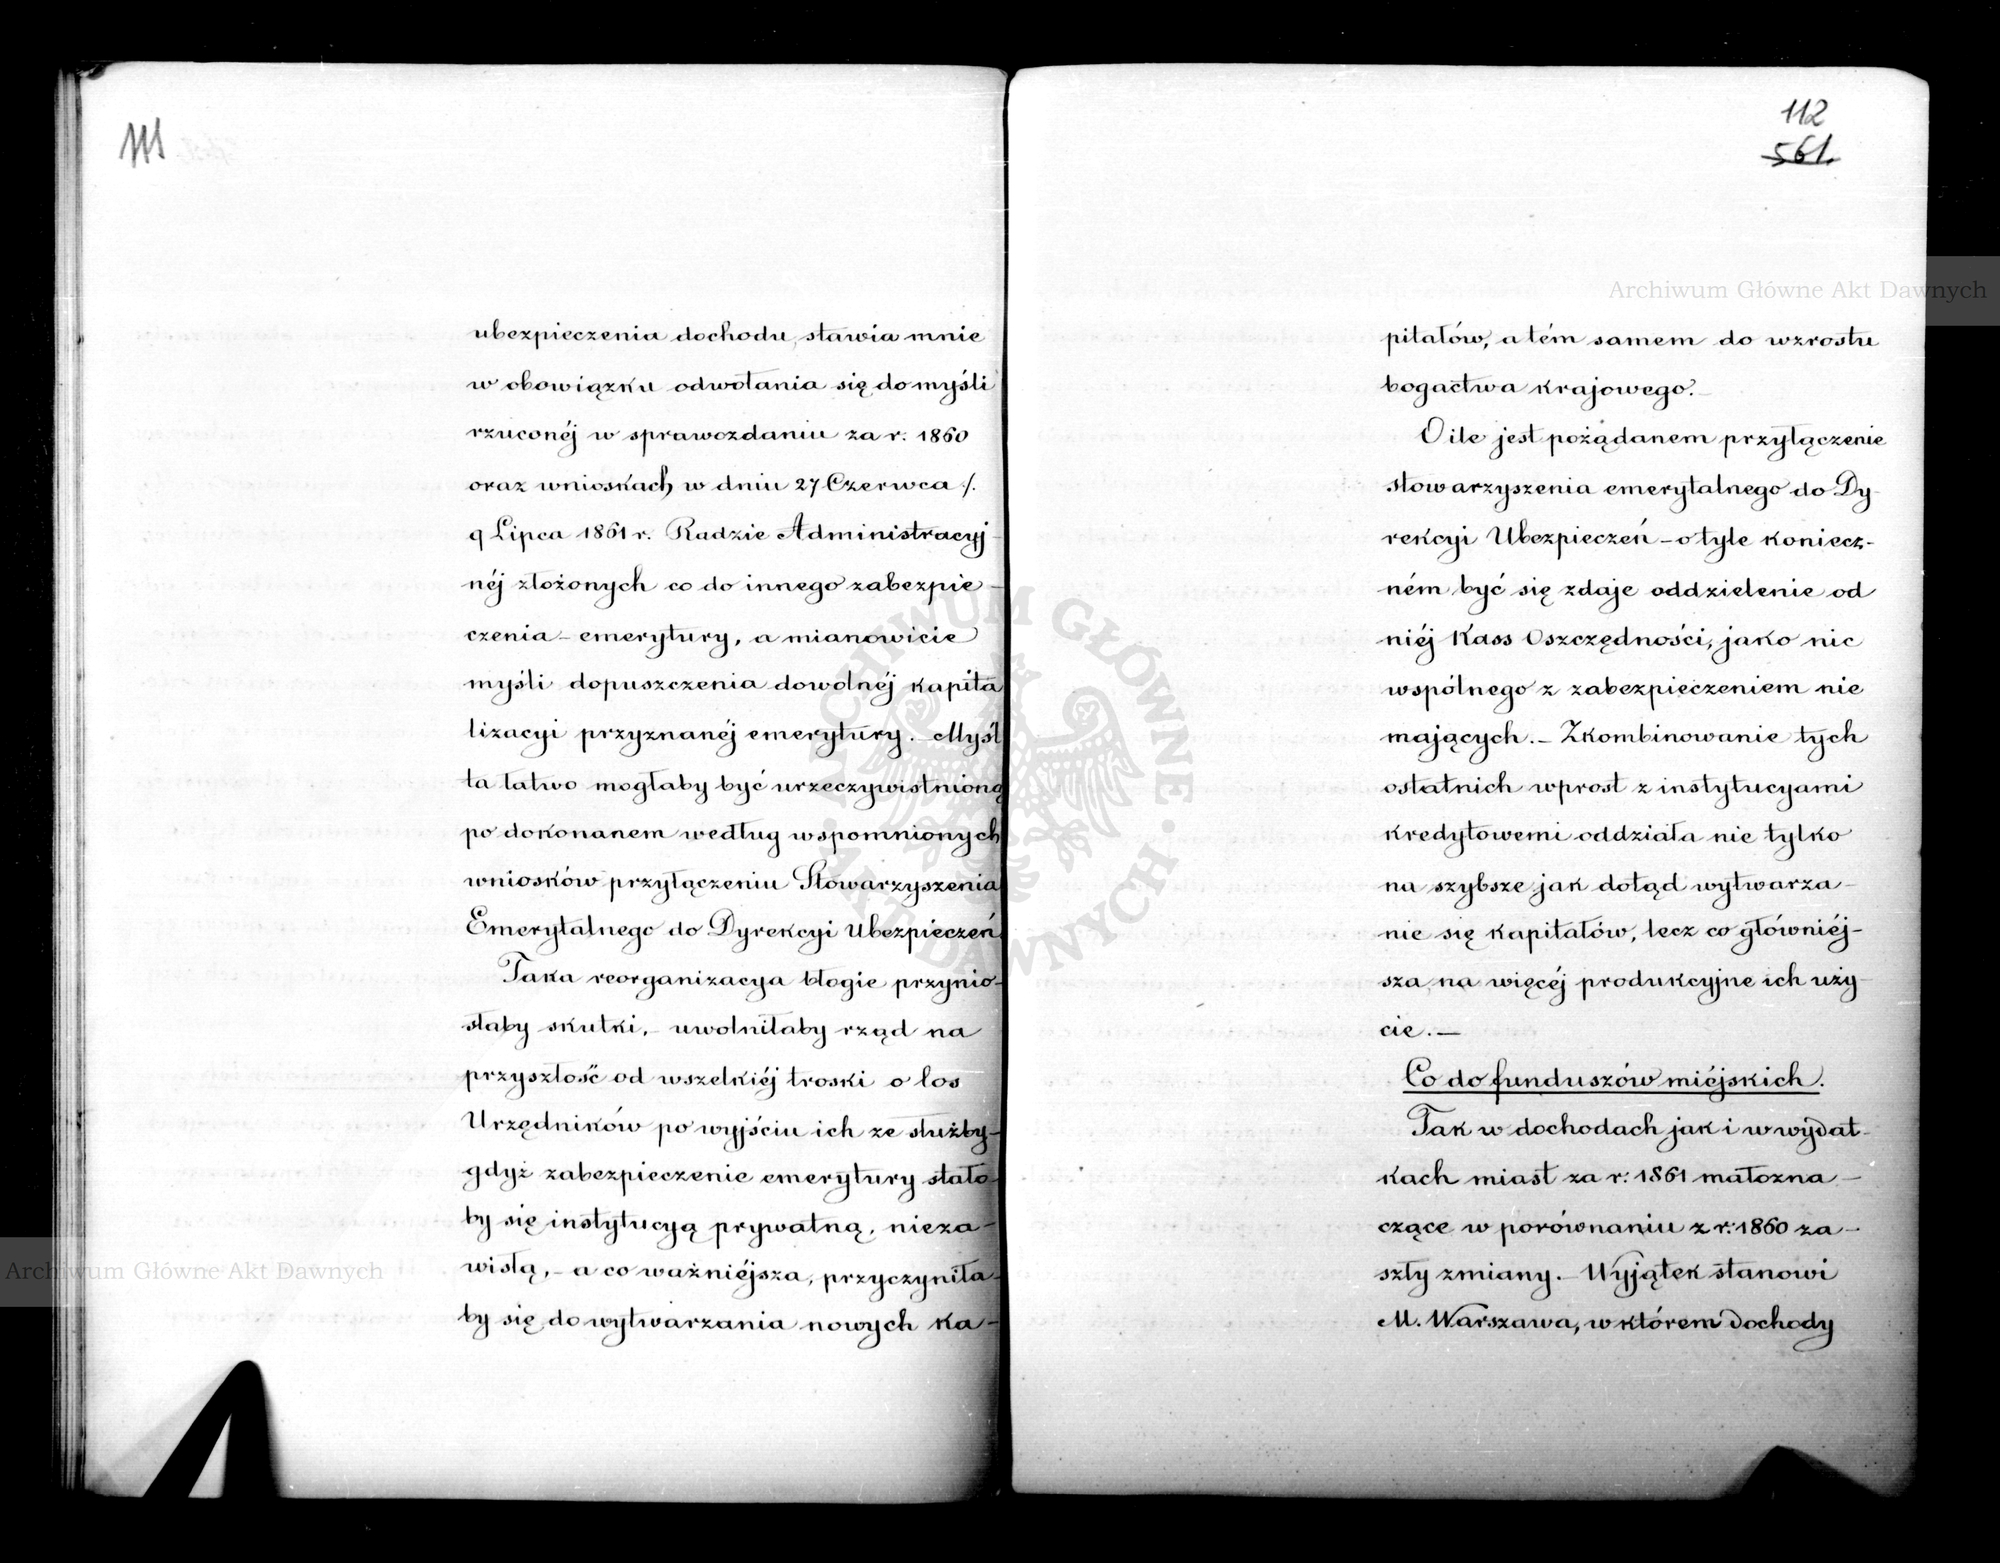 111
ubezpieczenia dochodu, stawia mnie
w obowiązku odwołania się do myśli
rzuconéj w sprawozdaniu za r. 1860
oraz wnioskach w dniu 27 Czerwca /.
9 Lipca 1861 r. Radzie Administracyj-
néj złożonych co do innego zabezpie-
czenia emerytury, a mianowicie
myśli dopuszczenia dowolnéj kapita
lizacyi przyznanéj emerytury. – Myśl
ta łatwo mogłaby być urzeczywistnioną
po dokonanem według wspomnionych
wniosków przyłączeniu Stowarzyszenia
Emerytalnego do Dyrekcyi Ubezpieczeń
Taka reorganizacya błogie przynio-
słaby skutki, – uwolniłaby rząd na
przyszłość od wszelkiéj troski o los
Urzędników po wyjściu ich ze służby –
gdyż zabezpieczenie emerytury stało-
by się instytucyą prywatną, nieza-
wisłą, – a co ważniéjsza, przyczyniła-
by się do wytwarzania nowych ka-
112
561.
pitałów, a tém samem do wzrostu
bogactwa krajowego. –
O ile jest pożądanem przyłączenie
stowarzyszenia emerytalnego do Dy-
rekcyi Ubezpieczeń – o tyle koniecz-
ném być się zdaje oddzielenie od
niéj Kass Oszczędności, jako nic
wspólnego z zabezpieczeniem nie
mających. – Zkombinowanie tych
ostatnich wprost z instytucyami
kredytowemi oddziała nie tylko
na szybsze jak dotąd wytwarza-
nie się kapitałów, lecz co główniéj-
sza, na więcéj produkcyjne ich uży-
cie. –
Co do funduszów miéjskich.
Tak w dochodach jak i w wydat-
kach miast za r. 1861 małozna-
czące w porównaniu z r. 1860 za-
szły zmiany. – Wyjątek stanowi
M. Warszawa, w którem dochody
Archiwum Główne Akt Dawnych
Archiwum Główne Akt Dawnych
ARCHIWUM GŁÓWNE · AKT DAWNYCH ·